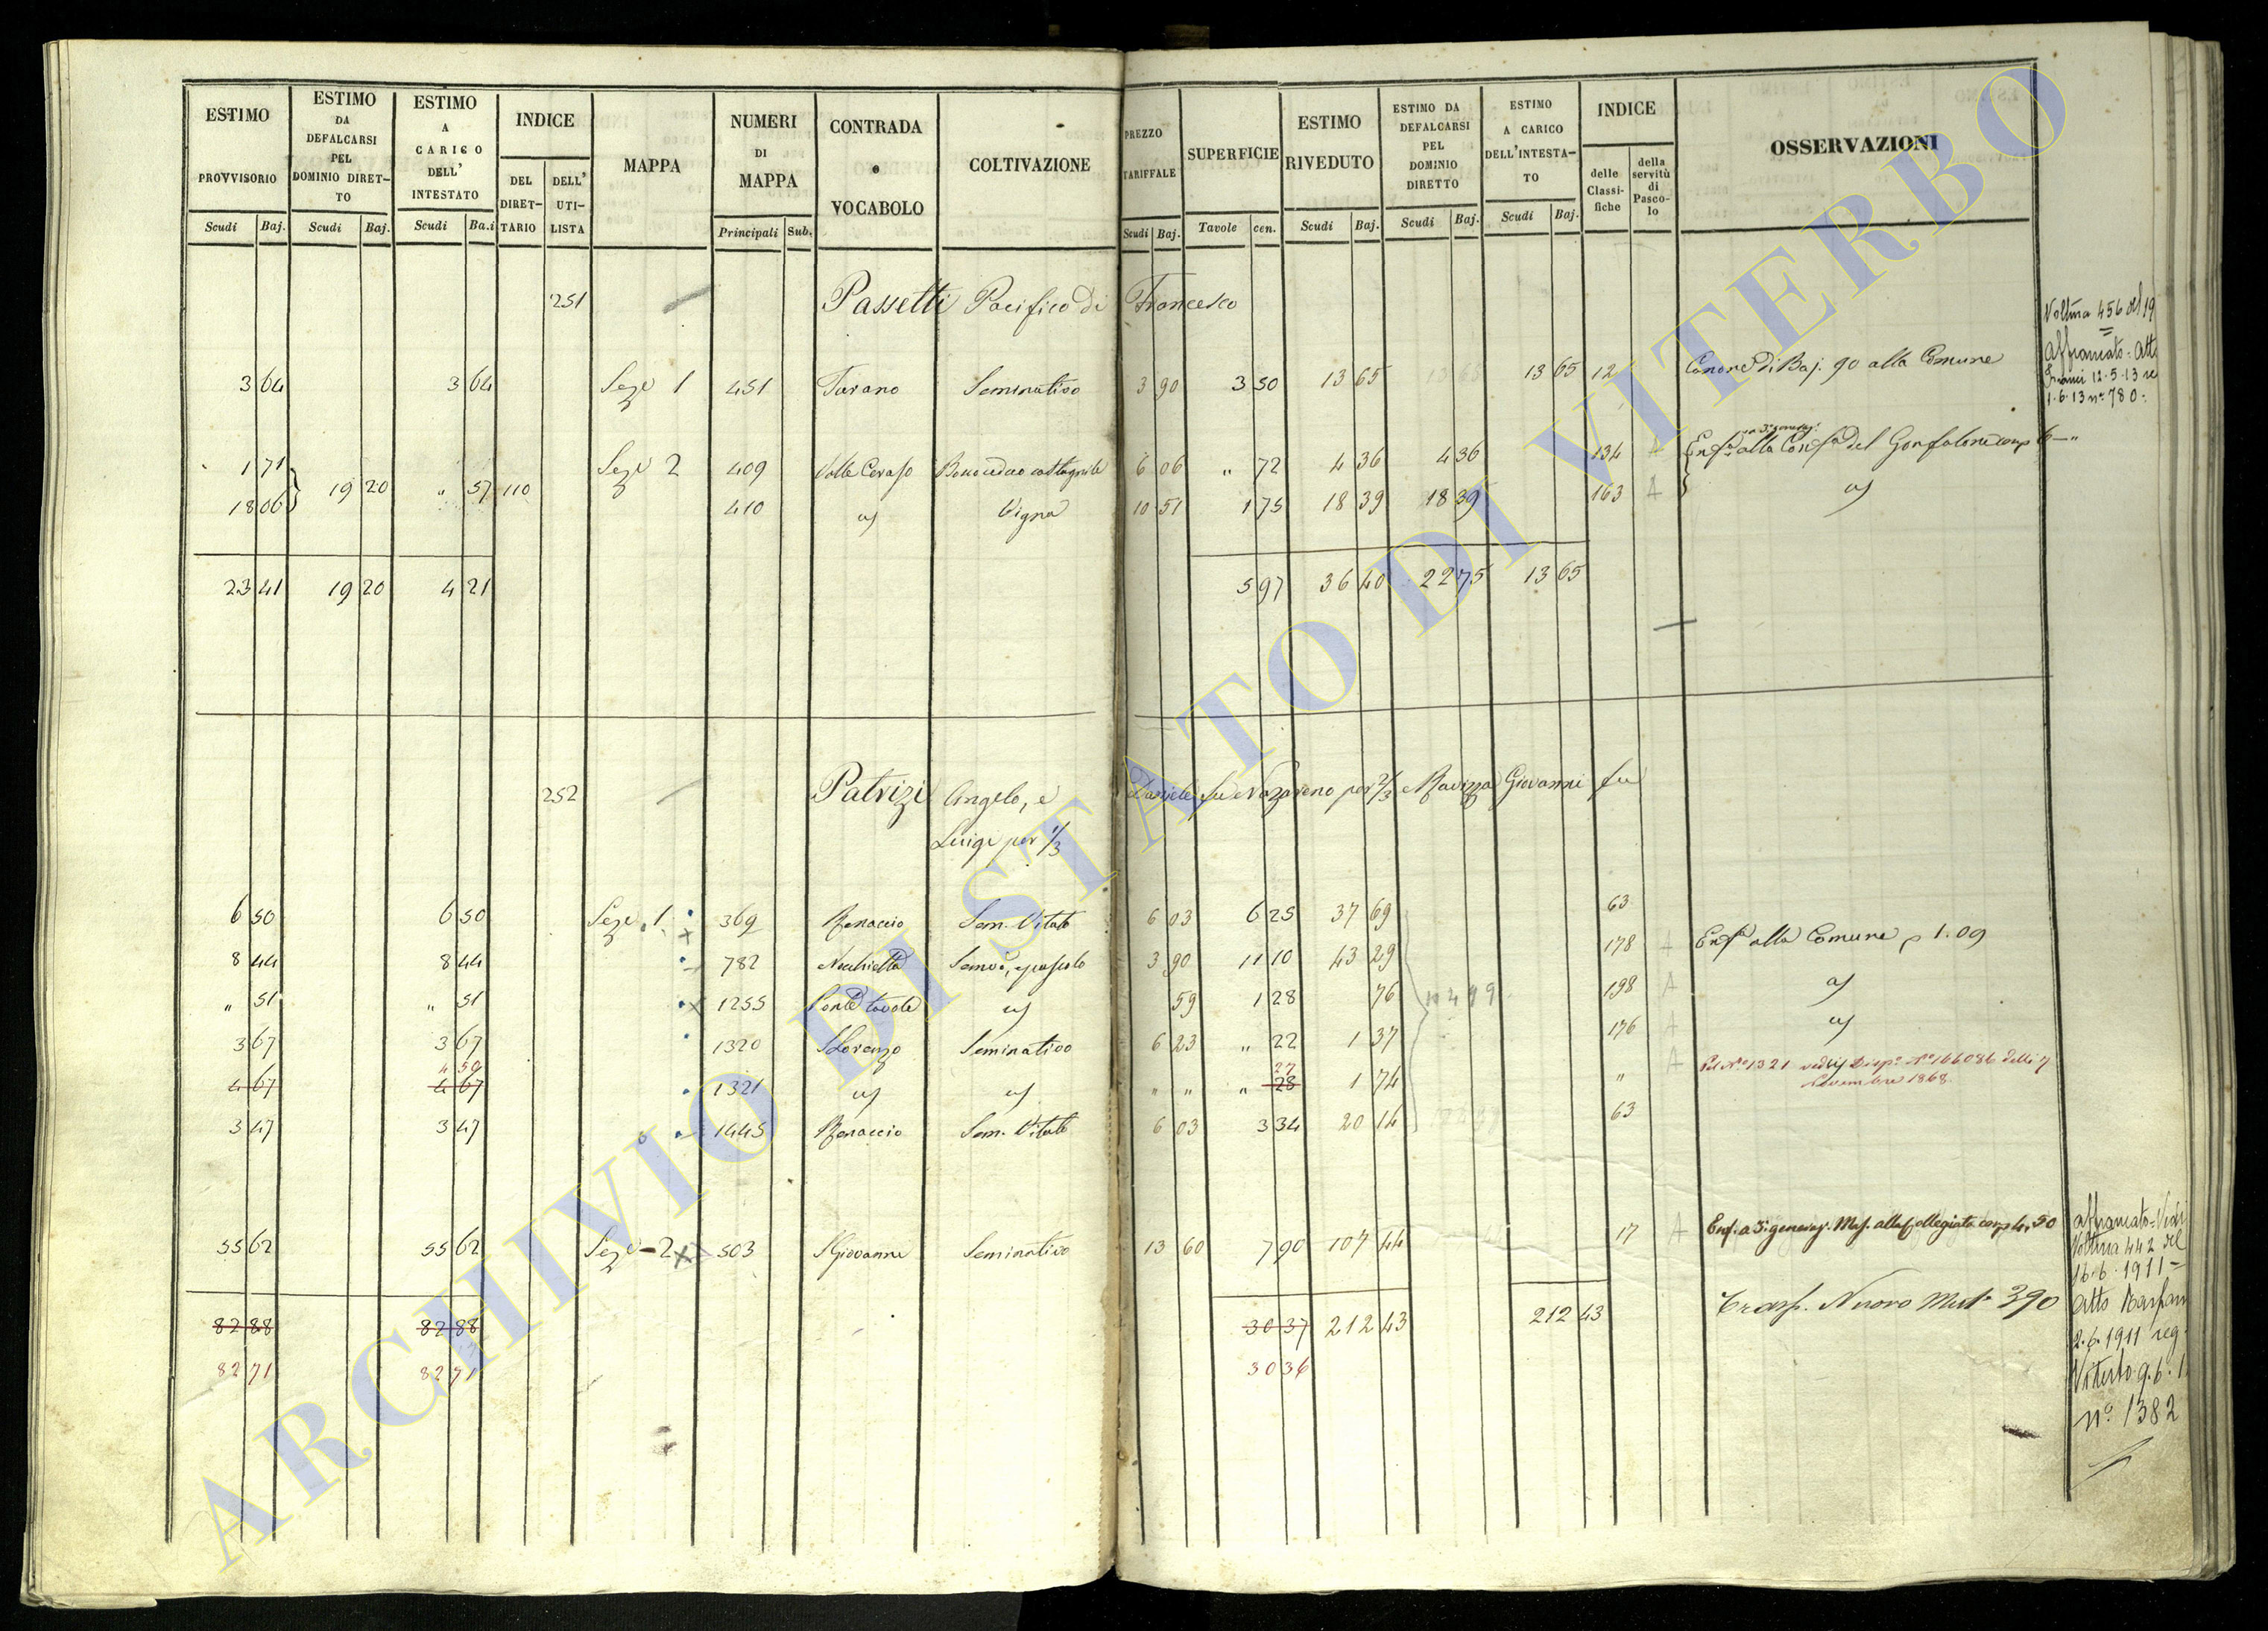 ESTIMO PROVVISORIO Scudi Baj.
ESTIMO DA DEFALCARSI PEL DOMINIO DIRET-TO Scudi Baj.
ESTIMO A CARICO DELL' INTESTATO Scudi Ba.i
INDICE DEL DIRET-TARIO DELL' UTI-LISTA
MAPPA
NUMERI DI MAPPA Principali Sub.
CONTRADA o VOCABOLO
COLTIVAZIONE
PREZZO TARIFFALE Scudi Baj.
SUPERFICIE Tavole cen.
ESTIMO RIVEDUTO Scudi Baj.
ESTIMO DA DEFALCARSI PEL DOMINIO DIRETTO Scudi Baj.
ESTIMO A CARICO DELL'INTESTA-TO Scudi Baj.
INDICE delle Classi-fiche della servitù di Pasco-lo
OSSERVAZIONI
251 Passetti Pacifico di Francesco
3 64 3 64 Seze 1 451 Tarano Seminativo 3 90 3 50 13 65 13 65 12 Canone di Baj. 90 alla Comune
1 71 Seze 2 409 Valle Ceraso castagnile 6 06 " 72 4 36 4 36 134 A Enfa a 3a generaz. alla Confa del Gonfalone
18 06 19 20 " 57 110 410 Vigna 10 51 1 75 18 39 18 39 163 A
23 41 19 20 4 21 5 97 36 40 22 75 13 65
Voltura 456 del 19
Affrancato. Atto
12.5.13
1.6.13 n° 780
252 Patrizi Angelo, e Daniele fu Nazareno per 2/3 e Ravizza Giovanni fu
Luigi per 1/3
6 50 6 50 Seze 1 369 Renaccio Sem. Vitato 6 03 6 25 37 69 63
8 44 8 44 782 Nocchietta Semvo, e pascolo 3 90 11 10 43 29 178 A Enfa alla Comune p 1.09
" 51 " 51 1255 59 1 28 76 198 A
3 67 3 67 1320 S Lorenzo Seminativo 6 23 " 22 1 37 176 A
4 50 27
4 67 4 67 1321 " " " 28 1 74 " A Pel N° 1321 vedi Disp° N° 166086 delli 7
Novembre 1868.
3 47 3 47 1445 Renaccio Sem. Vitato 6 03 3 34 20 14 63
55 62 55 62 Seze 2 503 S Giovanni Seminativo 13 60 7 90 107 44 17 A Enf. a 3a generaz. Mas. alla Collegiata 4,50
82 88 82 88 30 37 212 43 212 43 Trasp. Nuovo 390
82 71 82 71 30 36
Affrancato = Vedi
Voltura 442 del
16.6.1911 =
Atto
2.6.1911 reg.
Viterbo 9.6.1
n° 1382
ARCHIVIO DI STATO DI VITERBO